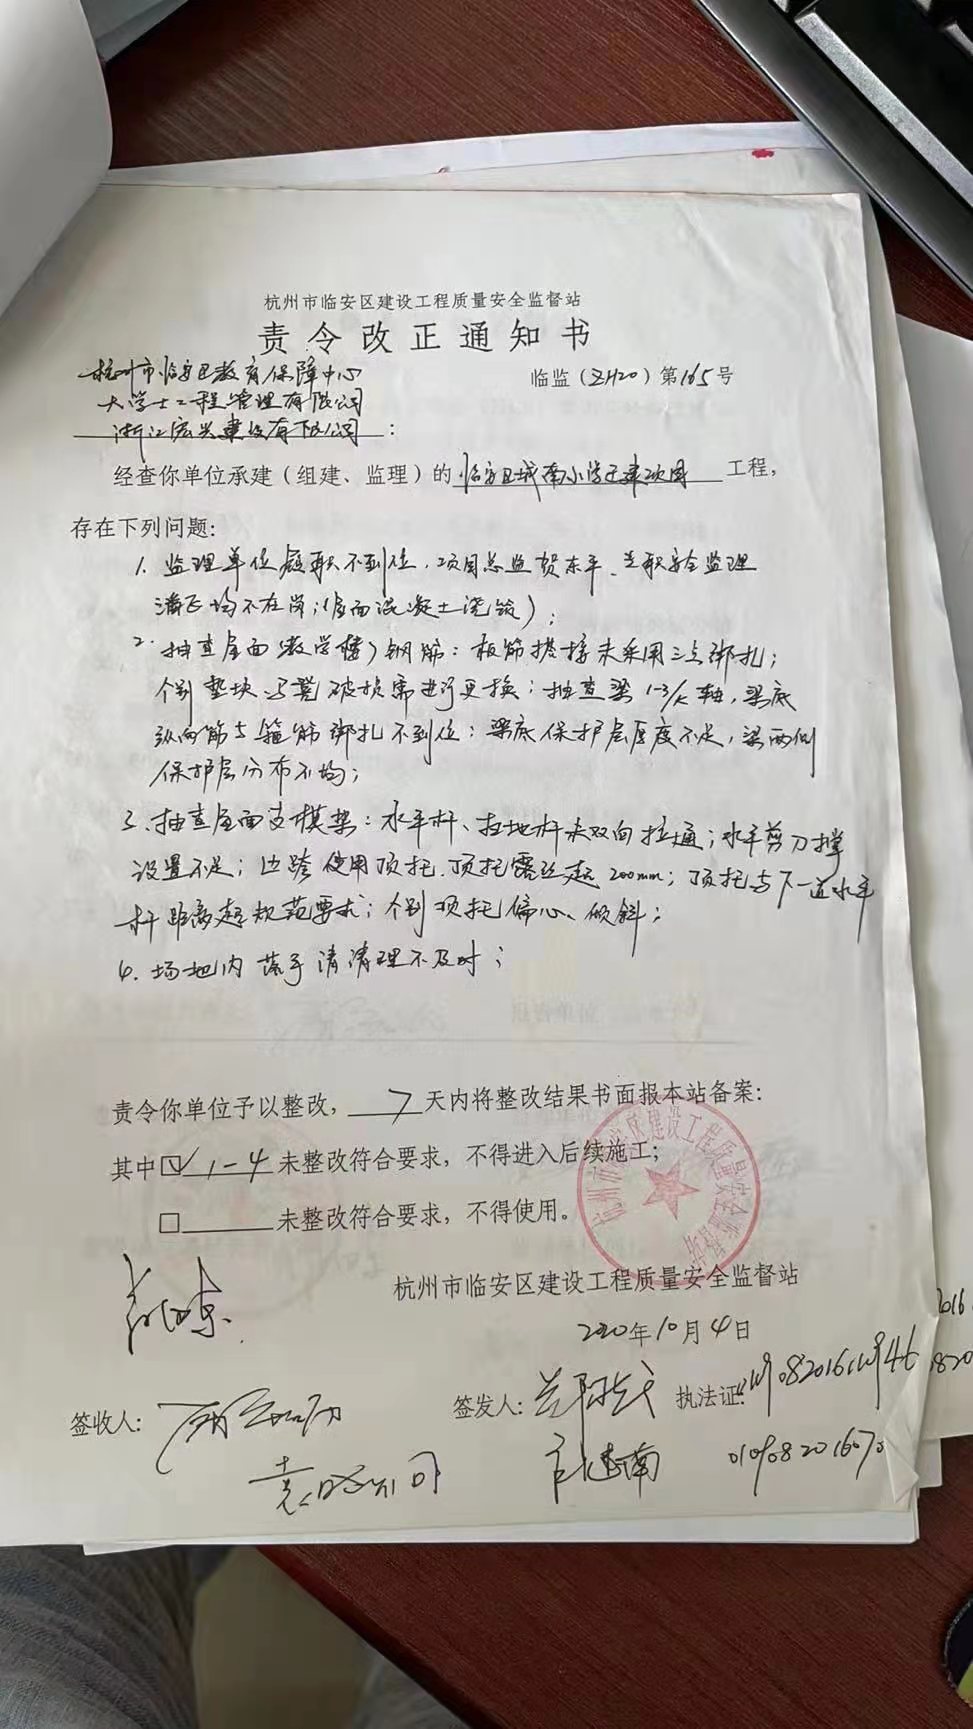 杭州市临安区建设工程质量安全监督站
责令改正通知书
杭州市临安区教育保障中心
临监(ZH20)第165号
大学士工程管理有限公司
浙江宏兴建设有限公司:
经查你单位承建(组建、监理)的临安区城南小学迁建项目工程,
存在下列问题:
1. 监理单位履职不到位,项目总监贺东平、专职安全监理
潘正均不在岗;(屋面混凝土浇筑);
2. 抽查屋面(教学楼)钢筋:板筋搭接未采用三点绑扎;
个别垫块、马凳破损需进行更换;抽查梁1-3/ 轴,梁底
纵向筋与箍筋绑扎不到位;梁底保护层厚度不足,梁两侧
保护层分布不均;
3、抽查屋面支模架:水平杆、扫地杆未双向拉通;水平剪刀撑
设置不足;边跨使用顶托,顶托露丝超200mm;顶托与下一道水平
杆距离超规范要求;个别顶托偏心、倾斜;
4. 场地内落手清清理不及时;
责令你单位予以整改,7天内将整改结果书面报本站备案:
其中☑1-4未整改符合要求,不得进入后续施工;
□未整改符合要求,不得使用。
杭州市临安区建设工程质量安全监督站
杭州市临安区建设工程质量安全监督站
2020年10月4日
签收人:
签发人:
执法证: